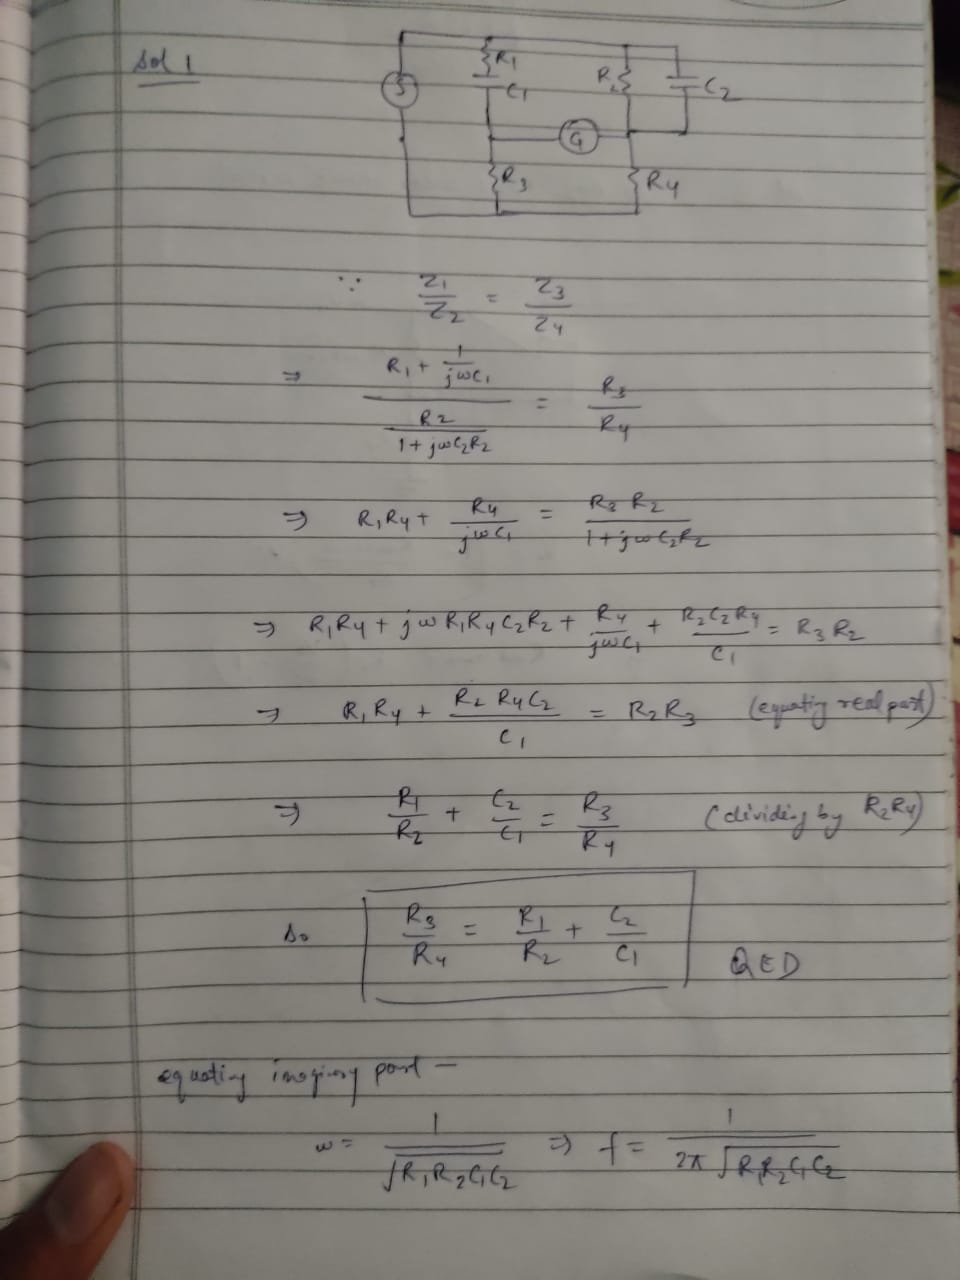 Sol 1
S R1 C1 R2 C2
G
R3 R4
∵ Z1/Z2 = Z3/Z4
⇒ (R1 + 1/jωC1) / (R2/(1+jωC2R2)) = R3/R4
⇒ R1R4 + R4/jωC1 = R3R2/(1+jωC2R2)
⇒ R1R4 + jωR1R4C2R2 + R4/jωC1 + R2C2R4/C1 = R3R2
⇒ R1R4 + R2R4C2/C1 = R2R3 (equating real part)
⇒ R1/R2 + C2/C1 = R3/R4 (dividing by R2R4)
So R3/R4 = R1/R2 + C2/C1 QED
equating imaginary part –
ω = 1/√R1R2C1C2 ⇒ f = 1/2π√R1R2C1C2